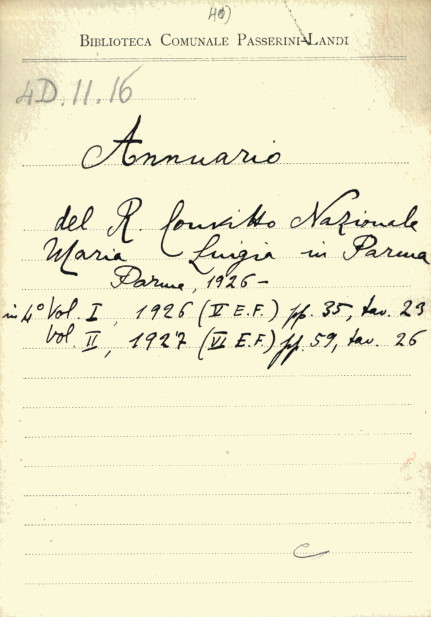 40)
BIBLIOTECA COMUNALE PASSERINI-LANDI
4D.11.16
Annuario
del R. Convitto Nazionale
Maria Luigia in Parma
Parma, 1926-
in 4° Vol. I, 1926 (V E.F.) pp. 35, tav. 23
Vol. II, 1927 (VI E.F.) pp. 59, tav. 26
C